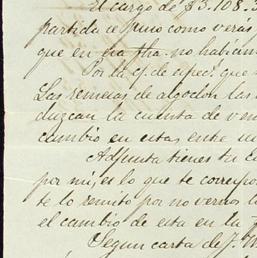 El cargo de $3.108.3
partida
como verás
que en
no habiam
Por la
de
que
Las remesas de algodon las
duzcan la cuenta de ven
cambio en estas, entre
Adjunta tienes tu
por mi, es lo que te correspo
te lo remito por no vernos
el cambio de esta en la
Segun carta de J.